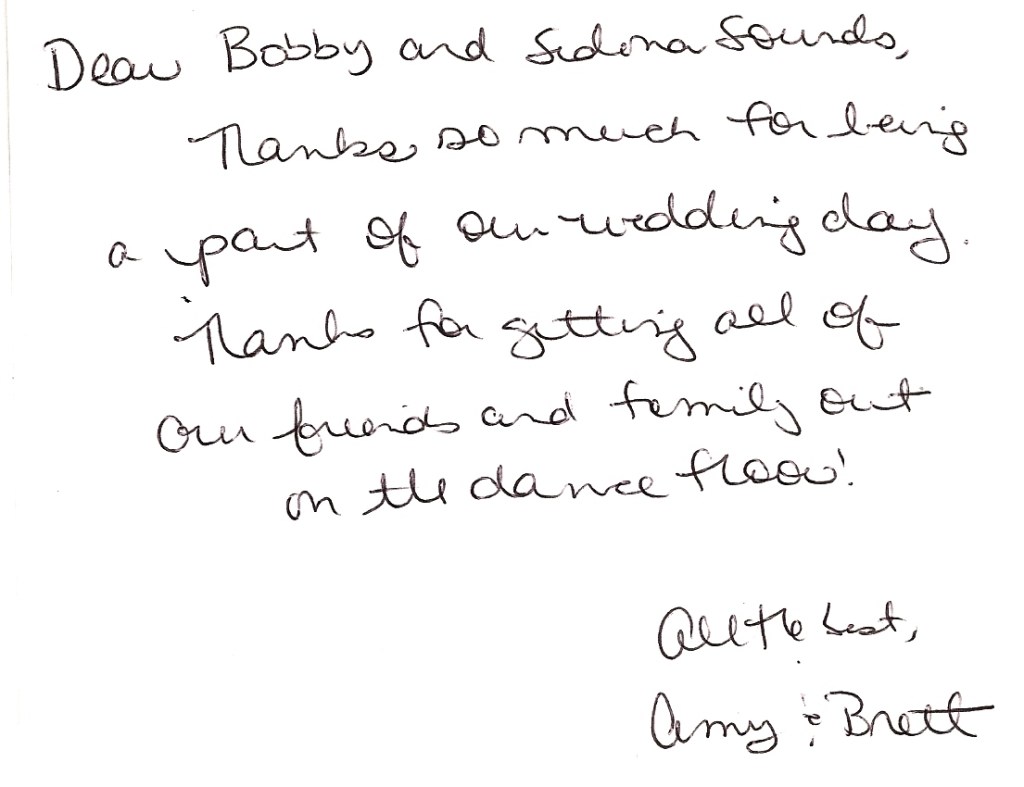 Dear Bobby and Sedona Sounds,
Thanks so much for being
a part of our wedding day.
Thanks for getting all of
our friends and family out
on the dance floor!
All the best,
Amy & Brett